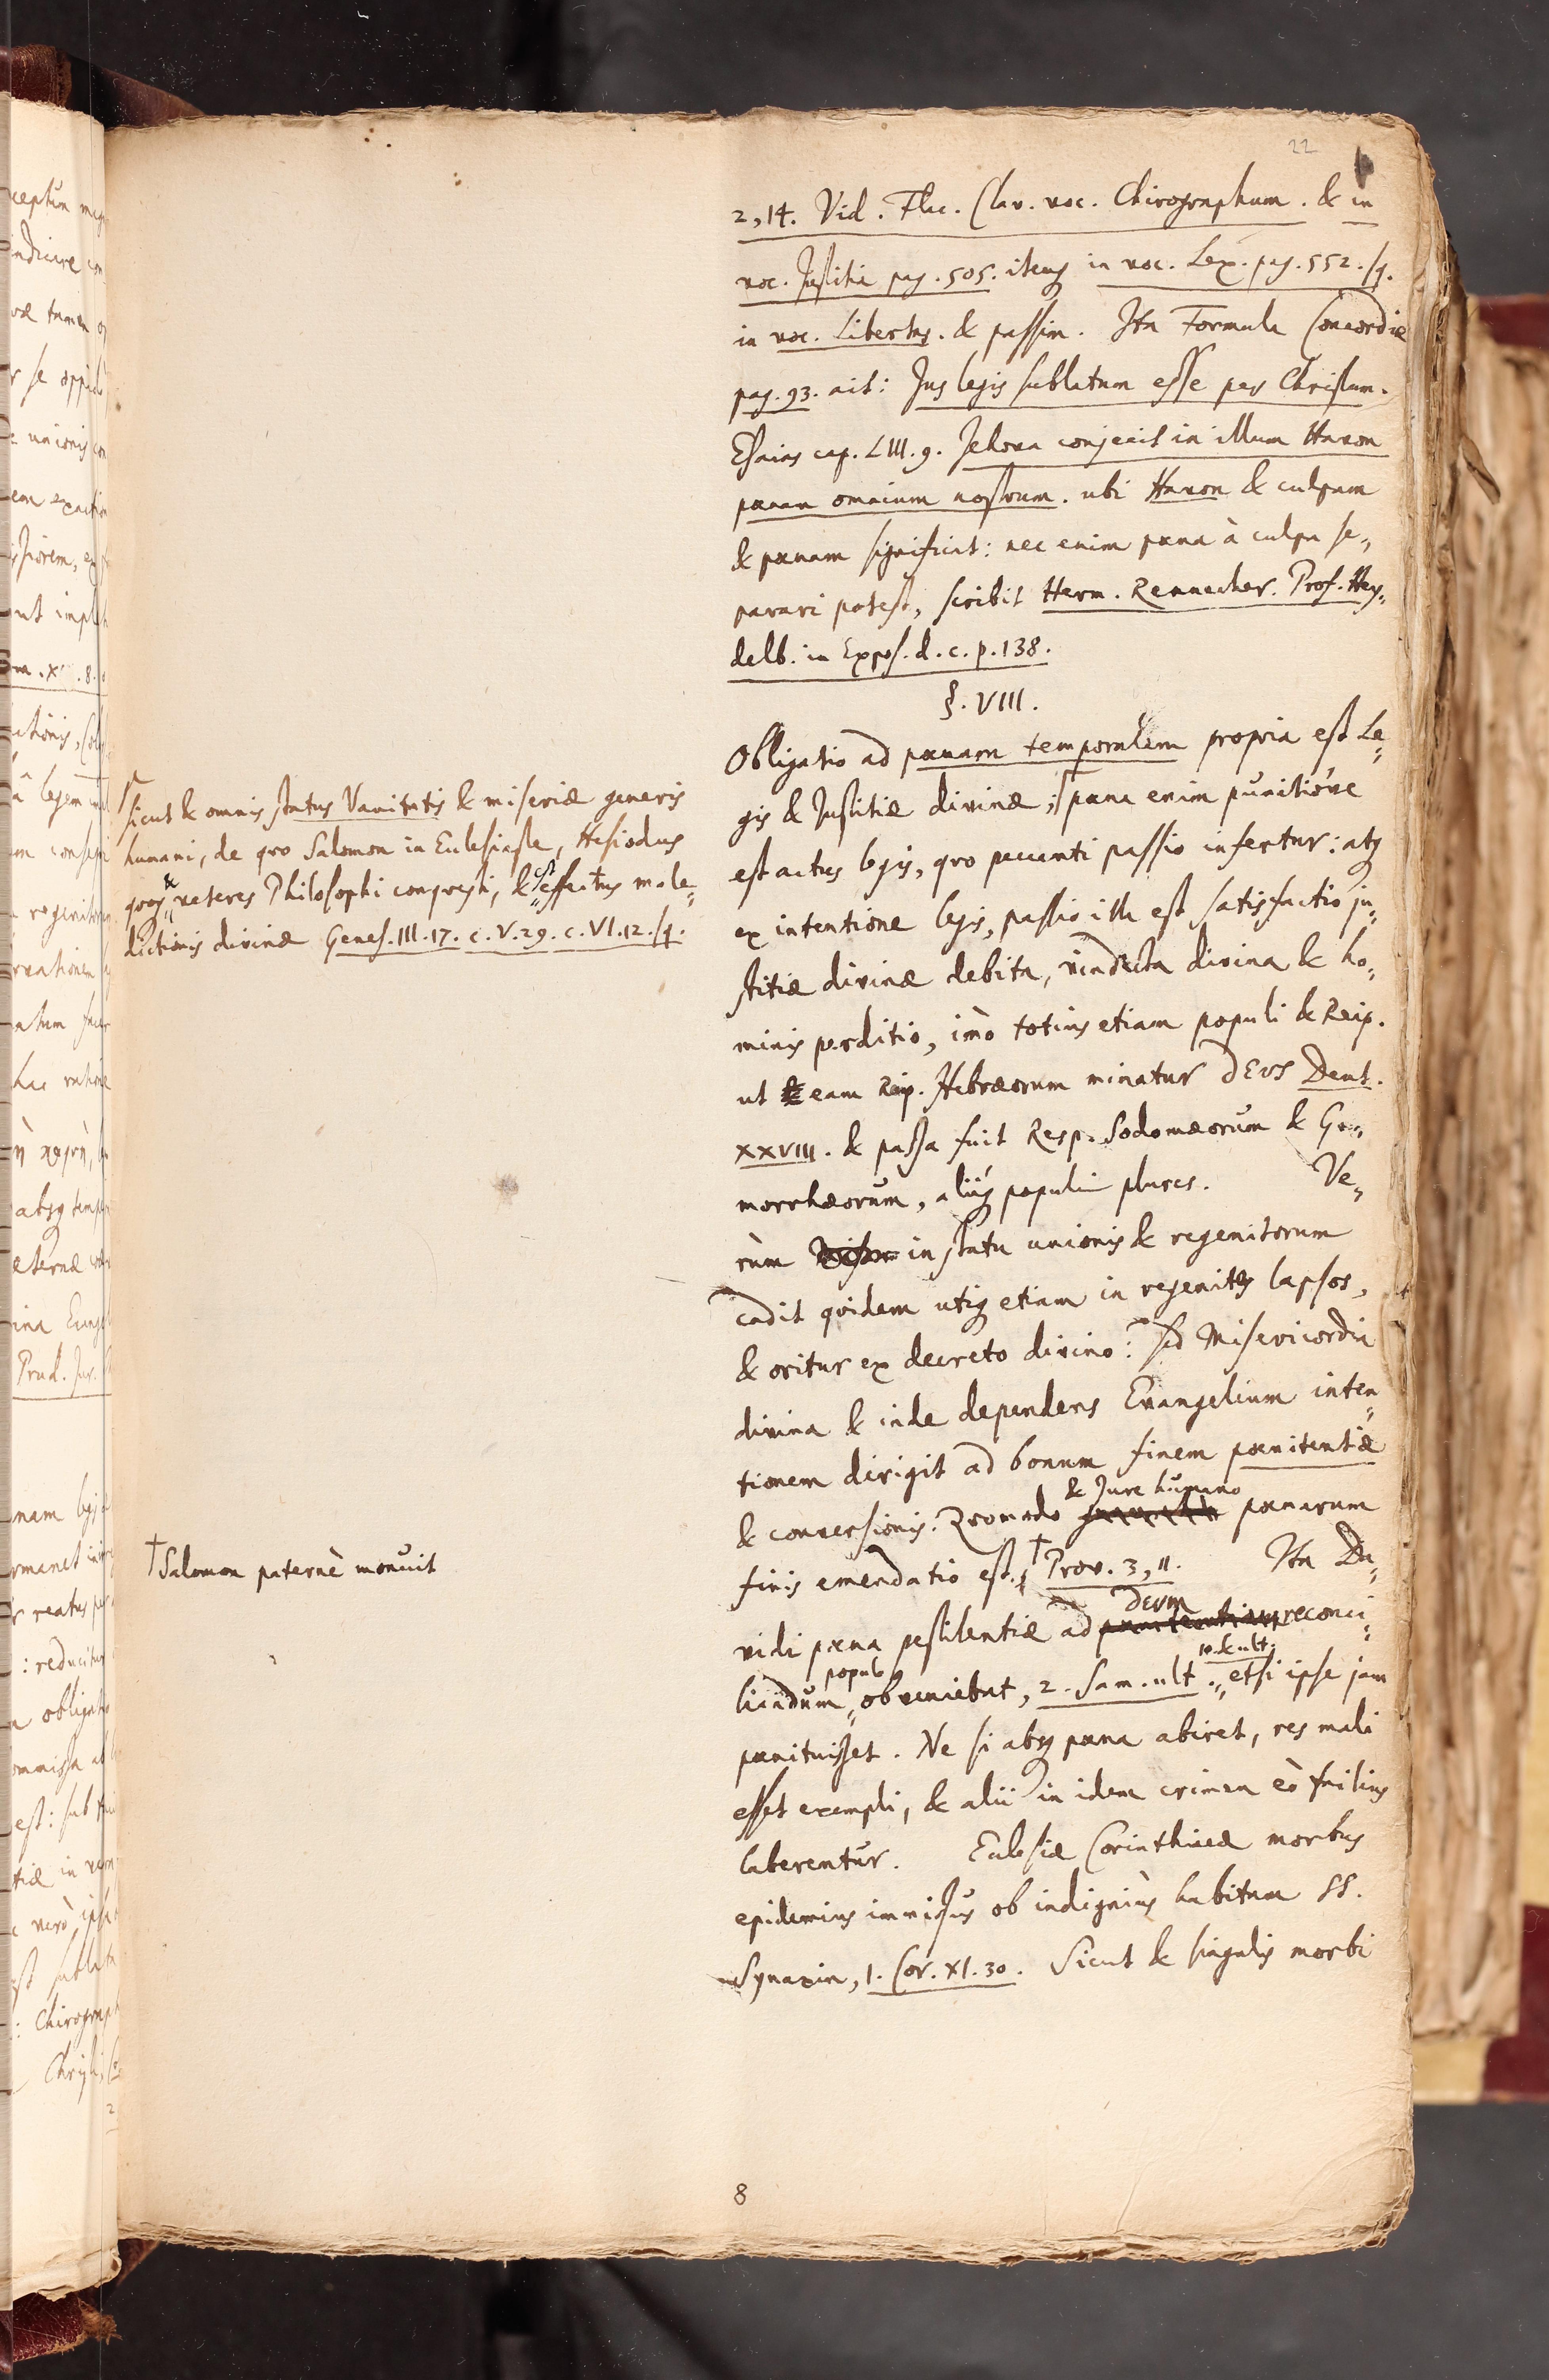 22
2,14. Vid. Flac. Clav. voc. Chirographum. & in
voc. Justitia pag. 505. item in voc. Lex. pag. 552. sq.
in voc. Libertas. & passim. Ita Formula Concordiæ
pag. 93. ait: Jus legis sublatum esse per Christum.
Esaias cap. LIII. 9. Jehova conjecit in illum Havon
pœnam omnium nostrum. ubi Havon & culpam
& pœnam significat: nec enim pœna à culpa se„
parari potest, scribit Herm. Rennecher. Prof. Hey„
delb. in Expos. d. c. p. 138.
§. VIII.
Obligatio ad pœnam temporalem propria est Le„
gis & Justitiæ divinæ; pœna enim punitiove
est actus legis, qvo peccanti passio infertur: atq
ex intentione legis, passio illa est satisfactio ju„
stitiæ divinæ debita, vindicta divina & ho„
minis perditio, imò totius etiam populi & Reip.
ut eam Reip. Hebræorum minatur DEUS Deut.
XXVIII. & passa fuit Resp. Sodomæorum & Go„
morrhæorum, aliiq populi plures. Ve„
rùm in statu unionis & regenitorum
cadit qvidem utiq etiam in regenitos lapsos,
& oritur ex decreto divino: sed Misericordia
divina & inde dependens Evangelium inten„
tionem dirigit ad bonum finem pœnitentiæ
& conversionis. Qvomodo & Jure humano pœnarum
finis emendatio est. † Prov. 3, 11. Ita Da„
vidi pœna pestilentiæ ad pœnitentiam DEUM reconci„
liandum populo obveniebat, 2. Sam. ult. 10. & ult. etsi ipse jam
pœnituisset. Ne si absq pœna abiret, res mali
esset exempli, & alii in idem crimen eò facilius
laberentur. Eclesiæ Corinthiacæ morbus
epidemius immissus ob indigniùs habitam SS.
Synaxin, 1. Cor. XI. 30. Sicut & singulis morbi
8
sicut & omnis status Vanitatis & miseriæ generis
humani, de qvo Salomon in Eclesiaste, Hesiodus
qvoq & veteres Philosophi conqvesti, & est effectus male„
dictionis divinæ Genes. III. 17. c. V. 29. c. VI. 12. sq.
† Salomon paternè monuit